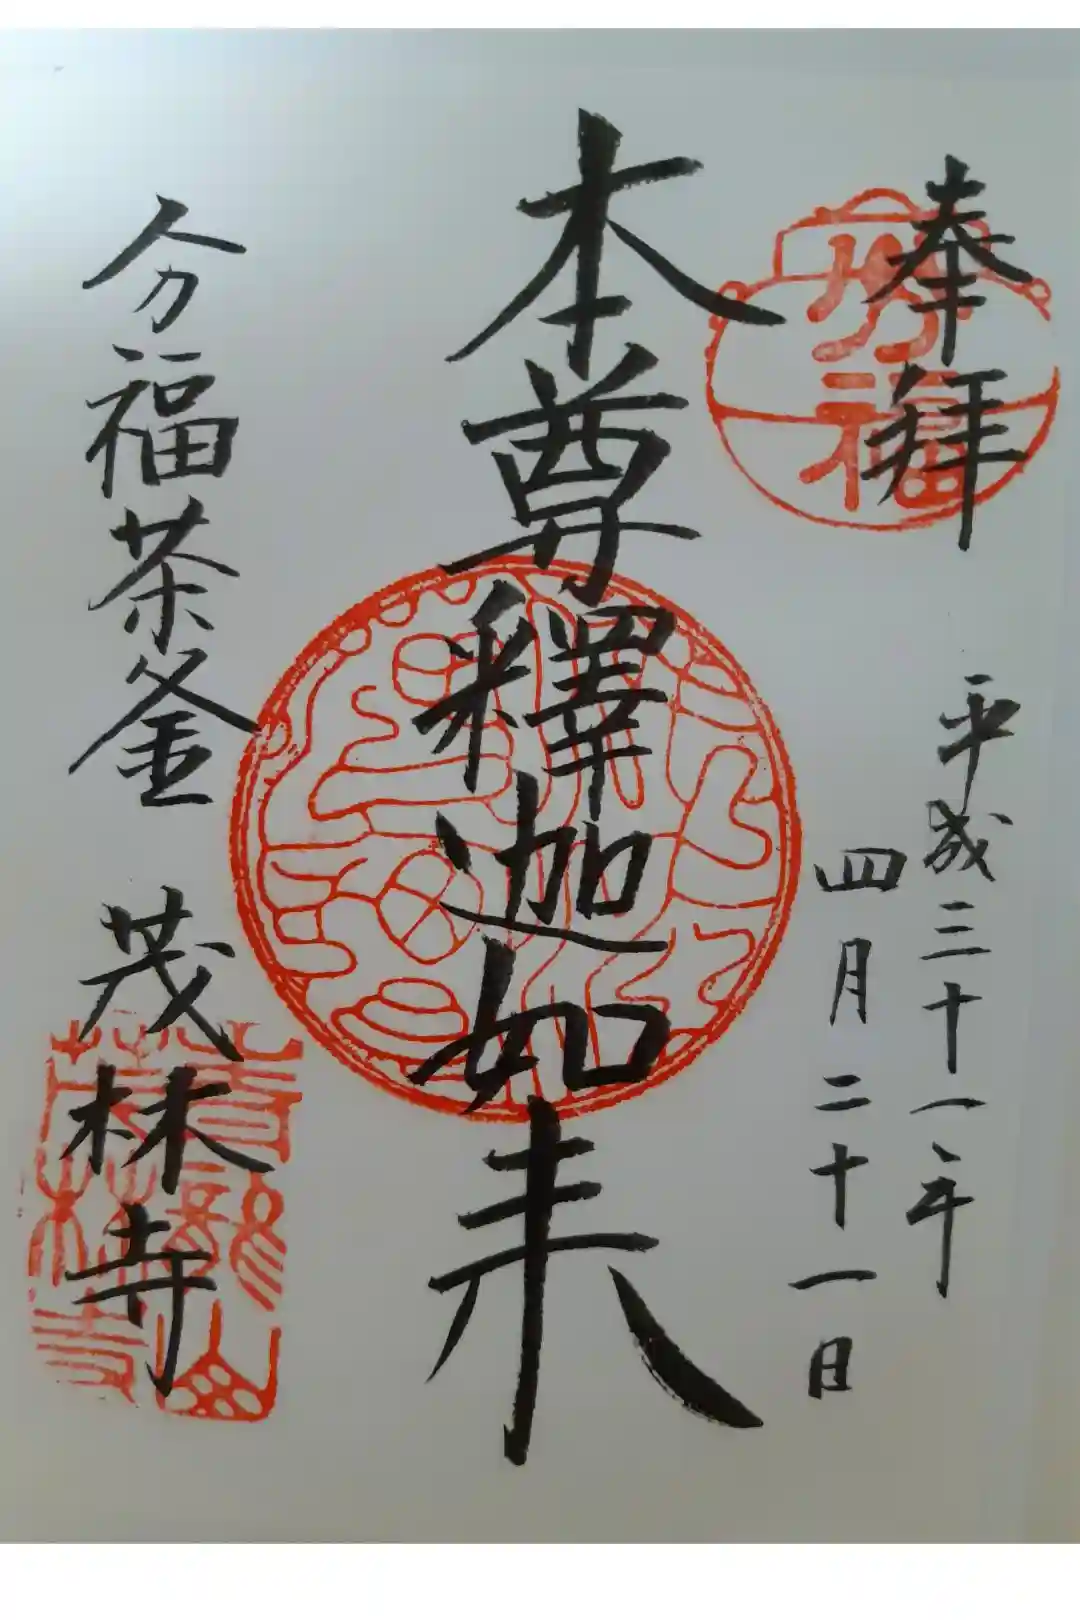 奉拝
平成三十一年
四月二十一日
本尊釋迦如来
分福茶釜 茂林寺
分福
青龍山
茂林寺